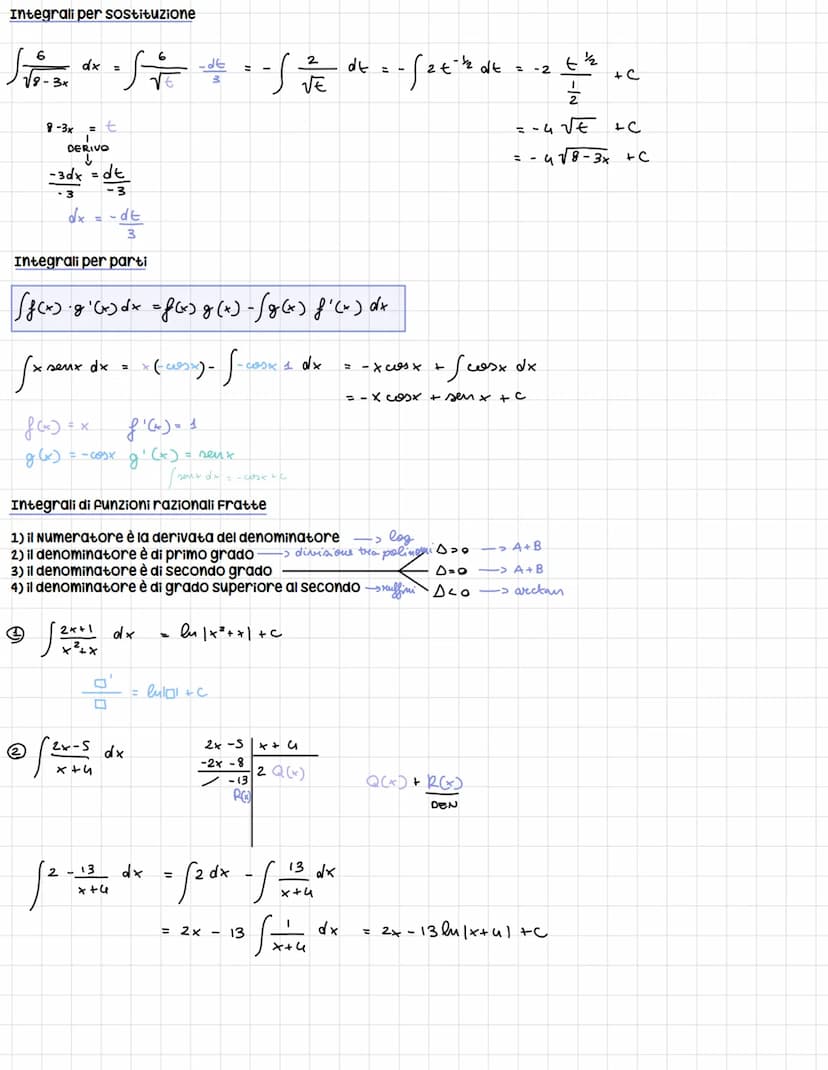 Integrali per sostituzione
∫ 6/√(8-3x) dx = ∫ 6/√t · -dt/3 = -∫ 2/√t dt = -∫ 2t^(-1/2) dt = -2 t^(1/2)/(1/2) + C
8-3x = t
= -4√t + C
DERIVO
= -4√(8-3x) + C
-3dx/-3 = dt/-3
dx = -dt/3
Integrali per parti
∫f(x)·g'(x)dx = f(x)g(x) - ∫g(x) f'(x) dx
∫x senx dx = x(-cosx) - ∫-cosx 1 dx = -x cosx + ∫cosx dx
= -x cosx + senx + C
f(x) = x f'(x) = 1
g(x) = -cosx g'(x) = senx
∫senx dx = -cosx + C
Integrali di funzioni razionali fratte
1) il Numeratore è la derivata del denominatore → log
2) il denominatore è di primo grado → divisione tra polinomi Δ>0 → A+B
3) il denominatore è di secondo grado Δ=0 → A+B
4) il denominatore è di grado superiore al secondo → ruffini Δ<0 → arctan
① ∫ (2x+1)/(x²+x) dx = ln|x²+x| + C
□'/□ = ln|□| + C
② ∫ (2x-5)/(x+4) dx 2x -5 | x+4
-2x -8 | 2 Q(x) Q(x) + R(x)/DEN
-13
R(x)
∫ 2 - 13/(x+4) dx = ∫2 dx - ∫ 13/(x+4) dx
= 2x - 13 ∫ 1/(x+4) dx = 2x - 13 ln|x+4| + C